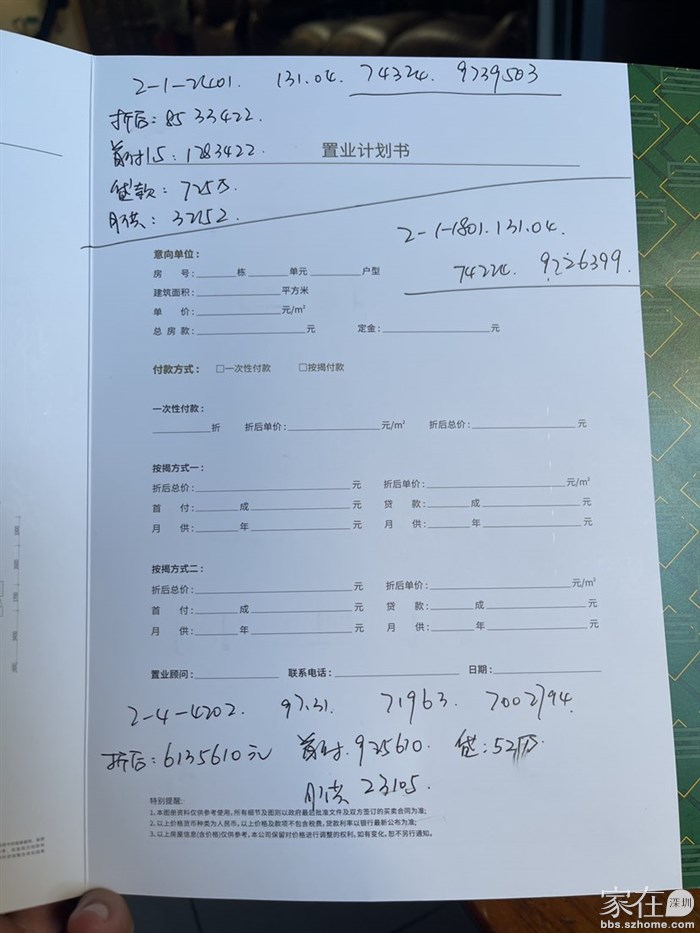 2-1-2401 131.04. 74324. 9739503
折后: 8533422.
首付15: 1283422.
置业计划书
贷款: 725万.
月供: 32152.
2-1-1801. 131.04.
74224. 9726399.
意向单位:
房 号: 栋 单元 户型
建筑面积: 平方米
单 价: 元/m²
总 房 款: 元 定金: 元
付款方式: □一次性付款 □按揭付款
一次性付款:
折 折后单价: 元/m² 折后总价: 元
按揭方式一:
折后总价: 元 折后单价: 元/m²
首 付: 成 元 贷 款: 成 元
月 供: 年 元 月 供: 年 元
按揭方式二:
折后总价: 元 折后单价: 元/m²
首 付: 成 元 贷 款: 成 元
月 供: 年 元 月 供: 年 元
置业顾问: 联系电话: 日期:
2-4-4202. 97.31. 71963. 7002794.
折后: 6135610元 首付. 925610. 贷: 521万.
月供 23105.
特别提醒:
1.本图册资料仅供参考使用,所有细节及图则以政府最后批准文件及双方签订的买卖合同为准;
2.以上价格货币种类为人民币,以上价格及数项不包含税费,贷款利率以银行最新公布为准;
3.以上房屋信息(含价格)仅供参考,本公司保留对价格进行调整的权利,如有变化,恕不另行通知。
家在 深圳
bbs.szhome.com